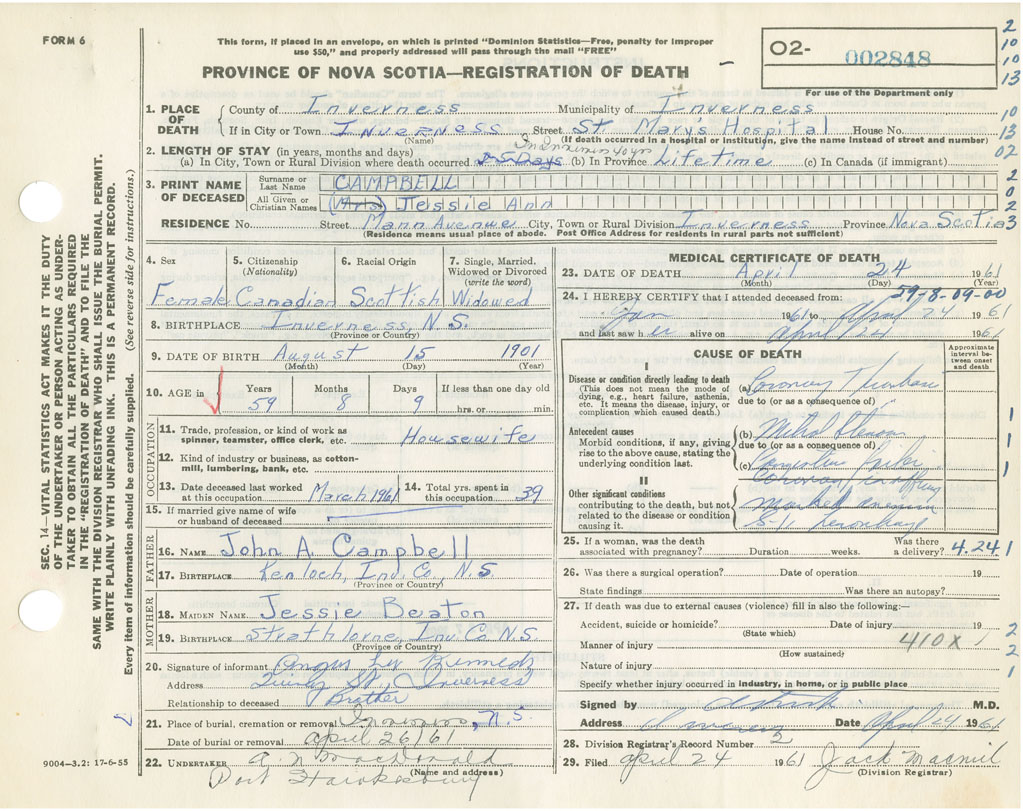 FORM 6
This form, if placed in an envelope, on which is printed "Dominion Statistics—Free, penalty for improper
use $50," and properly addressed will pass through the mail "FREE"
PROVINCE OF NOVA SCOTIA—REGISTRATION OF DEATH
O2- 002848
For use of the Department only
2
10
10
13
10
13
02
2
0
2
3
SEC. 14—VITAL STATISTICS ACT MAKES IT THE DUTY
OF THE UNDERTAKER OR PERSON ACTING AS UNDER-
TAKER TO OBTAIN ALL THE PARTICULARS REQUIRED
IN THE "REGISTRATION OF DEATH" AND TO FILE THE
SAME WITH THE DIVISION REGISTRAR WHO SHALL ISSUE THE BURIAL PERMIT.
WRITE PLAINLY WITH UNFADING INK. THIS IS A PERMANENT RECORD.
Every item of information should be carefully supplied. (See reverse side for instructions.)
1. PLACE OF DEATH County of Inverness Municipality of Inverness
If in City or Town Inverness Street St. Mary's Hospital House No.
(Name) (If death occurred in a hospital or institution, give the name instead of street and number)
2. LENGTH OF STAY (in years, months and days)
(a) In City, Town or Rural Division where death occurred (b) In Province Lifetime (c) In Canada (if immigrant)
3. PRINT NAME OF DECEASED Surname or Last Name CAMPBELL
All Given or Christian Names (Mrs) Jessie Ann
RESIDENCE No. Street Mann Avenue City, Town or Rural Division Inverness Province Nova Scotia
(Residence means usual place of abode. Post Office Address for residents in rural parts not sufficient)
4. Sex 5. Citizenship (Nationality) 6. Racial Origin 7. Single, Married, Widowed or Divorced (write the word)
Female Canadian Scottish Widowed
8. BIRTHPLACE Inverness, N.S.
(Province or Country)
9. DATE OF BIRTH August 15 1901
(Month) (Day) (Year)
10. AGE in Years Months Days If less than one day old
59 8 9 hrs. or min.
OCCUPATION
11. Trade, profession, or kind of work as
spinner, teamster, office clerk, etc. Housewife
12. Kind of industry or business, as cotton-
mill, lumbering, bank, etc.
13. Date deceased last worked at this occupation March 1961 14. Total yrs. spent in this occupation 39
15. If married give name of wife
or husband of deceased
FATHER
16. NAME John A. Campbell
17. BIRTHPLACE Kenloch, Inv. Co. N.S.
(Province or Country)
MOTHER
18. MAIDEN NAME Jessie Beaton
19. BIRTHPLACE Strathlorne, Inv Co N.S.
(Province or Country)
20. Signature of informant Angus Kennedy
Address St, Inverness
Relationship to deceased Brother
21. Place of burial, cremation or removal Inverness, N.S.
Date of burial or removal April 26/61
22. UNDERTAKER A. N. MacDonald
(Name and address)
Port Hawkesbury
9004—3.2: 17-6-55
MEDICAL CERTIFICATE OF DEATH
23. DATE OF DEATH April 24 1961
(Month) (Day) (Year)
59-8-09-00
24. I HEREBY CERTIFY that I attended deceased from:
Jan 1961 to April 24 1961
and last saw her alive on April 24 1961
CAUSE OF DEATH
Approximate interval be-tween onset and death
I
Disease or condition directly leading to death
(This does not mean the mode of
dying, e.g., heart failure, asthenia,
etc. It means the disease, injury, or
complication which caused death.)
(a) Coronary
due to (or as a consequence of)
Antecedent causes
Morbid conditions, if any, giving
rise to the above cause, stating the
underlying condition last.
(b) Mitral
due to (or as a consequence of)
(c)
II
Other significant conditions
contributing to the death, but not
related to the disease or condition
causing it.
1
1
1
25. If a woman, was the death associated with pregnancy? Duration weeks. Was there a delivery? 4.24.1
26. Was there a surgical operation? Date of operation 19
State findings Was there an autopsy?
27. If death was due to external causes (violence) fill in also the following:—
Accident, suicide or homicide? Date of injury 19
(State which)
Manner of injury 410X
(How sustained)
Nature of injury
Specify whether injury occurred in industry, in home, or in public place
2
2
1
Signed by M.D.
Address Inverness Date April 24 1961
28. Division Registrar's Record Number 2
29. Filed April 24 1961 Jack
(Division Registrar)